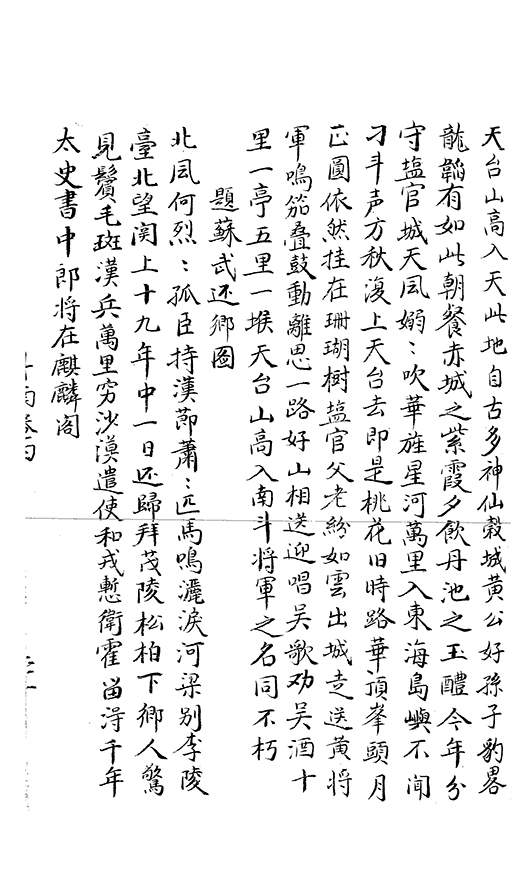 天台山高入天此地自古多神仙穀城黄公好孫子豹畧
龍韜有如此朝餐赤城之紫霞夕飲丹池之玉醴今年分
守塩官城天風嫋〻吹華旌星河萬里入東海島嶼不聞
刁斗声方秋復上天台去即是桃花旧時路華頂峯頭月
正圓依然挂在珊瑚樹塩官父老紛如雲出城走送黄將
軍鳴笳疊鼓動離思一路好山相送迎唱吴歌劝吴酒十
里一亭五里一堠天台山高入南斗將軍之名同不朽
題蘇武还鄉圖
北風何烈〻孤臣持漢節蕭〻匹馬鳴灑淚河梁别李陵
臺北望関上十九年中一日还歸拜茂陵松柏下鄉人驚
見鬢毛斑漢兵萬里穷沙漠遣使和戎慙衛霍畄淂千年
太史書中郎将在麒麟阁